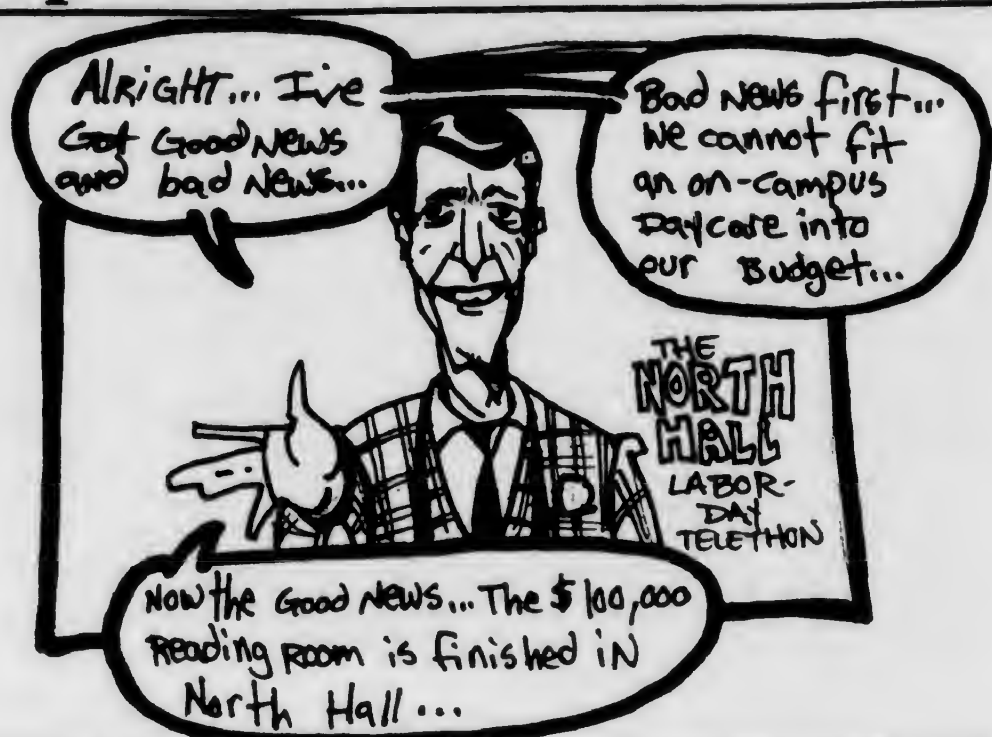 AlRiGHT... I've
Got Good News
and bad News...
Bad News first...
We cannot fit
an on-campus
Daycare into
our Budget...
THE
NORTH
HALL
LABOR-
DAY
TELETHON
Now the Good News... The $100,000
Reading Room is finished in
North Hall...